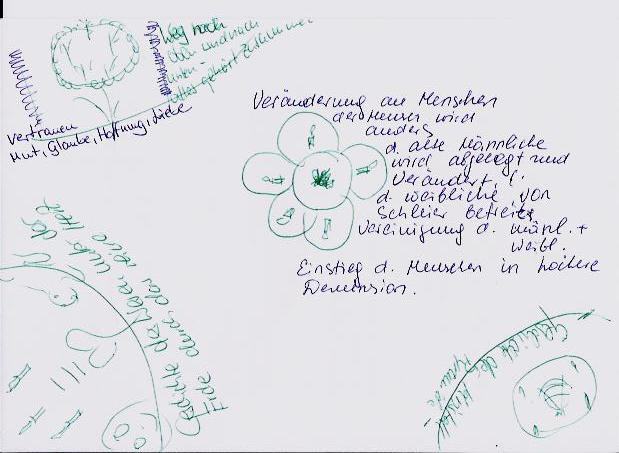 Weg nach
oben und nach
unten -
alles gehört zusammen
Vertrauen
Mut, Glaube, Hoffnung, Liebe
Veränderung am Menschen
der Mensch wird
anders
d. alte Männliche
wird abgelegt und
verändert,
d. weibliche von
Schleier befreit,
Vereinigung d. männl. +
weibl.
Einstieg d. Menschen in höhere
Demension.
Geschichte der
Erde durch das
Geschichte der Kristall